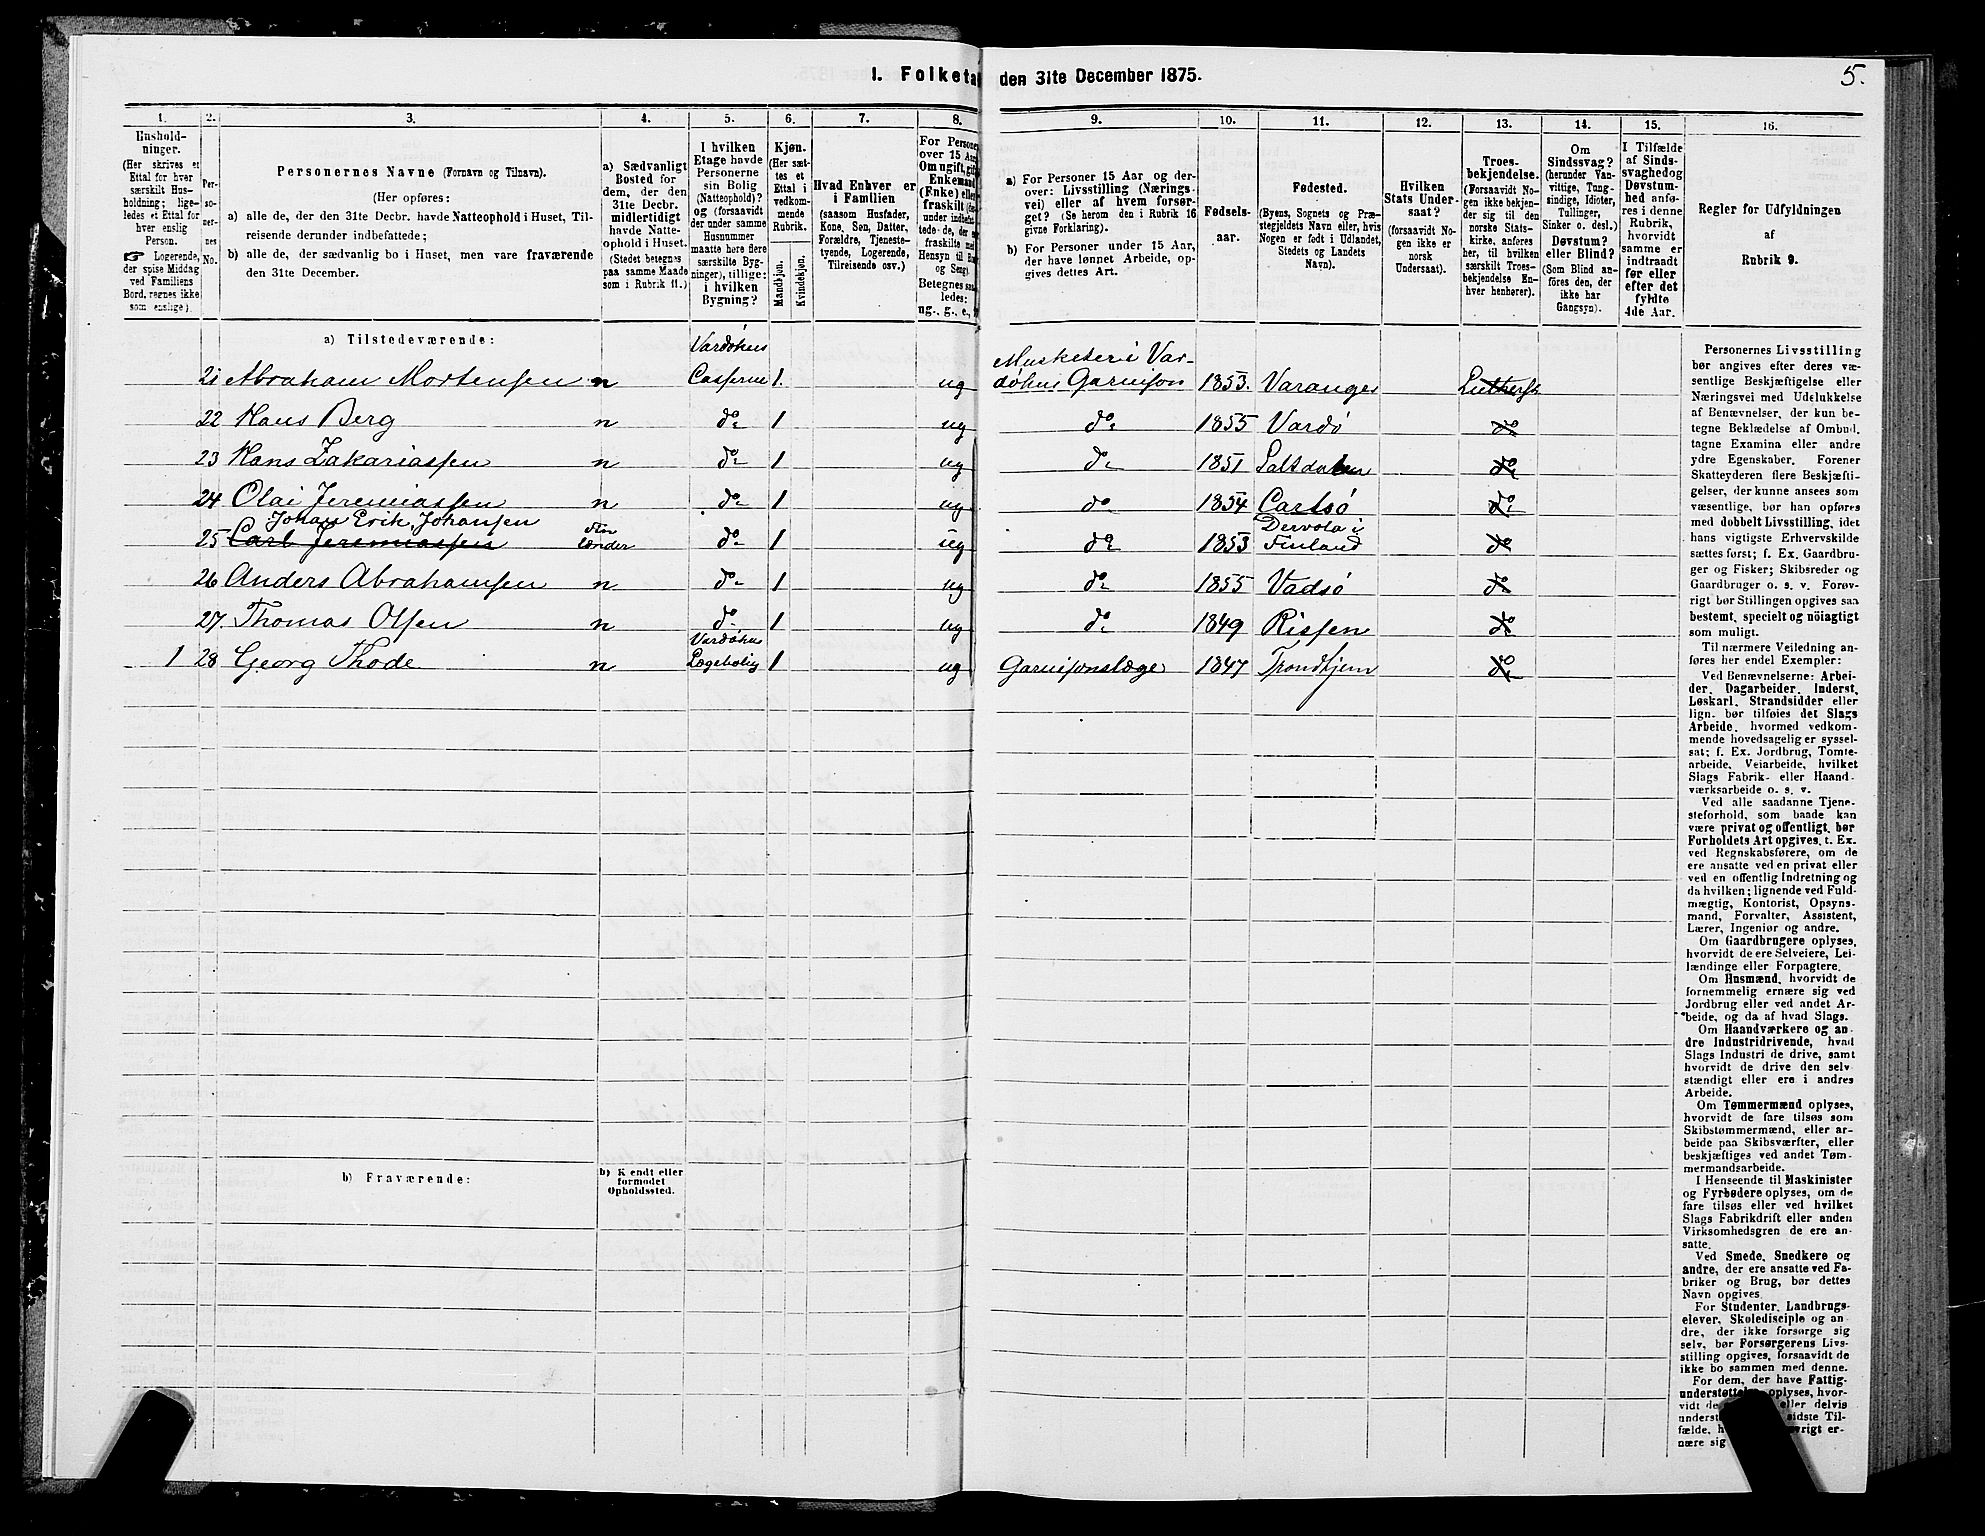 1. Folketa den 31te December 1875.
5.
1.
Hushold-
ninger.
(Her skrives et
Ettal for hver
særskilt Hus-
holdning; lige-
ledes et Ettal for
hver enslig
Person.
☞ Logerende,
der spise Middag
ved Familiens
Bord, regnes ikke
som enslige).
2.
Per-
so-
ner-
nes
No.
3.
Personernes Navne (Fornavn og Tilnavn).
(Her opføres:
a) alle de, der den 31te Decbr. havde Natteophold i Huset, Til-
reisende derunder indbefattede;
b) alle de, der sædvanlig bo i Huset, men vare fraværende
den 31te December.
4.
a) Sædvanligt
Bosted for
dem, der den
31te Decbr.
midlertidigt
havde Natte-
ophold i Huset.
(Stedet betegnes
paa samme Maade
som i Rubrik 11.)
5.
I hvilken
Etage havde
Personerne
sin Bolig
(Natteophold)?
og (forsaavidt
der under samme
Husnummer
maatte høre flere
særskilte Byg-
ninger), tillige:
i hvilken
Bygning?
6.
Kjøn.
(Her sæt-
tes et
Ettal i
vedkom-
mende
Rubrik.
Mandkjøn.
Kvindekjøn.
7.
Hvad Enhver er
i Familien
(saasom Husfader,
Kone, Søn, Datter,
Forældre, Tjeneste-
tyende, Logerende,
Tilreisende osv.)
8.
For Personer
over 15 Aar
Om ugift, gift
Enkemand
(Enke) eller
fraskilt
under indbefat
tede de, der
fraskilte med
Hensyn til Bord
og Seng).
Betegnes saa-
ledes:
ug., g., e.,
9.
a) For Personer 15 Aar og der-
over: Livsstilling (Nærings-
vei) eller af hvem forsør-
get? (Se herom den i Rubrik 16
givne Forklaring).
b) For Personer under 15 Aar,
der have lønnet Arbeide, op-
gives dettes Art.
10.
Fødsels-
aar.
11.
Fødested.
(Byens, Sognets og Præ-
stegjeldets Navn eller, hvis
Nogen er født i Udlandet,
Stedets og Landets
Navn).
12.
Hvilken
Stats Under-
saat?
(forsaavidt No-
gen ikke er
norsk
Undersaat).
13.
Troes-
bekjendelse.
(Forsaavidt No-
gen ikke bekjen-
der sig til den
norske Stats-
kirke, anføres
her, til hvilken
særskilt Troes-
bekjendelse En-
hver henhører).
14.
Om
Sindssvag?
(herunder Van-
vittige, Tung-
sindige, Idioter,
Tullinger,
Sinker o. desl.)
Døvstum?
eller Blind?
(Som Blind an-
føres den, der
ikke har
Gangsyn).
15.
I Tilfælde
af Sinds-
svaghed og
Døvstum-
hed anfø-
res i denne
Rubrik,
hvorvidt
samme er
indtraadt
før eller
efter det
fyldte
4de Aar.
16.
Regler for Udfyldningen
af
Rubrik 9.
a) Tilstedeværende:
Vardøhus Musketer i Var-
21 Abraham Mortensen n Casserne 1. ug døhus Garnison 1853. Varanges Luthersk
22 Hans Berg n do 1 ug do 1855 Vardø do
23 Hans Zakariassen n do 1 ug do 1851 Saltdalen do
24 Olai Jeremiassen n do 1 ug do 1854 Carlsø do
Johan Erik Johansen Dervola i
25 Carl Jeremiassen do 1 ug do 1853 Finland do
26 Anders Abrahamsen n do 1 ug do 1855 Vadsø do
27. Thomas Olsen n do 1 ug do 1849 Rissen do
Vardøhus
1 28 Georg Thode n Lægebolig 1 ug Garnisonslæge 1847 Trondhjem do
b) Fraværende:
b) Kjendt eller
formodet
Opholdssted.
Personernes Livsstilling
bør angives efter deres væ-
sentlige Beskjæftigelse eller
Næringsvei med Udelukkelse
af Benævnelser, der kun be-
tegne Beklædelse af Ombud,
tagne Examina eller andre
ydre Egenskaber. Forener
Skatteyderen flere Beskjæfti-
gelser, der kunne ansees som
væsentlige, bør han opføres
med dobbelt Livsstilling, idet
hans vigtigste Erhvervskilde
sættes først; f. Ex. Gaardbru-
ger og Fisker; Skibsreder og
Gaardbruger o. s. v. Forøv-
rigt bør Stillingen opgives saa
bestemt, specielt og nöiagtigt
som muligt.
Til nærmere Veiledning an-
føres her endel Exempler:
Ved Benævnelserne: Arbei-
der, Dagarbeider, Inderst,
Løskarl, Strandsidder eller
lign. bør tilføies det Slags
Arbeide, hvormed vedkom-
mende hovedsagelig er syssel-
sat; f. Ex. Jordbrug, Tomte-
arbeide, Veiarbeide, hvilket
Slags Fabrik- eller Haand-
værksarbeide o. s. v.
Ved alle saadanne Tjene-
steforhold, som baade kan
være privat og offentligt, bør
Forholdets Art opgives, t. Ex.
ved Regnskabsførere, om de
ere ansatte ved en privat eller
ved en offentlig Indretning og
da hvilken; lignende ved Fuld-
mægtig, Kontorist, Opsyns-
mand, Forvalter, Assistent,
Lærer, Ingeniør og andre.
Om Gaardbrugere oplyses,
hvorvidt de ere Selveiere, Lei-
lændinge eller Forpagtere.
Om Husmænd, hvorvidt de
fornemmelig ernære sig ved
Jordbrug eller ved andet Ar-
beide, og da af hvad Slags.
Om Haandværkere og an-
dre Industridrivende, hvad
Slags Industri de drive, samt
hvorvidt de drive den selv-
stændigt eller ere i andres
Arbeide.
Om Tømmermænd oplyses,
hvorvidt de fare tilsøs som
Skibstømmermænd, eller ar-
beide paa Skibsværfter, eller
beskjæftiges ved andet Tøm-
mermandsarbeide.
I Henseende til Maskinister
og Fyrbødere oplyses, om de
fare tilsøs eller ved hvilket
Slags Fabrikdrift eller anden
Virksomhedsgren de ere an-
satte.
Ved Smede, Snedkere og
andre, der ere ansatte ved Fa-
briker og Brug, bør dettes
Navn opgives.
For Studenter, Landbrugs-
elever, Skoledisciple og an-
dre, der ikke forsørge sig
selv, bør Forsørgerens Livs-
stilling opgives, forsaavidt de
ikke bo sammen med denne.
For dem, der have Fattig-
understøttelse oplyses, hvor-
vidt de eller delvis
underst sidste Til-
fælde, h vrigt er-
nære sig